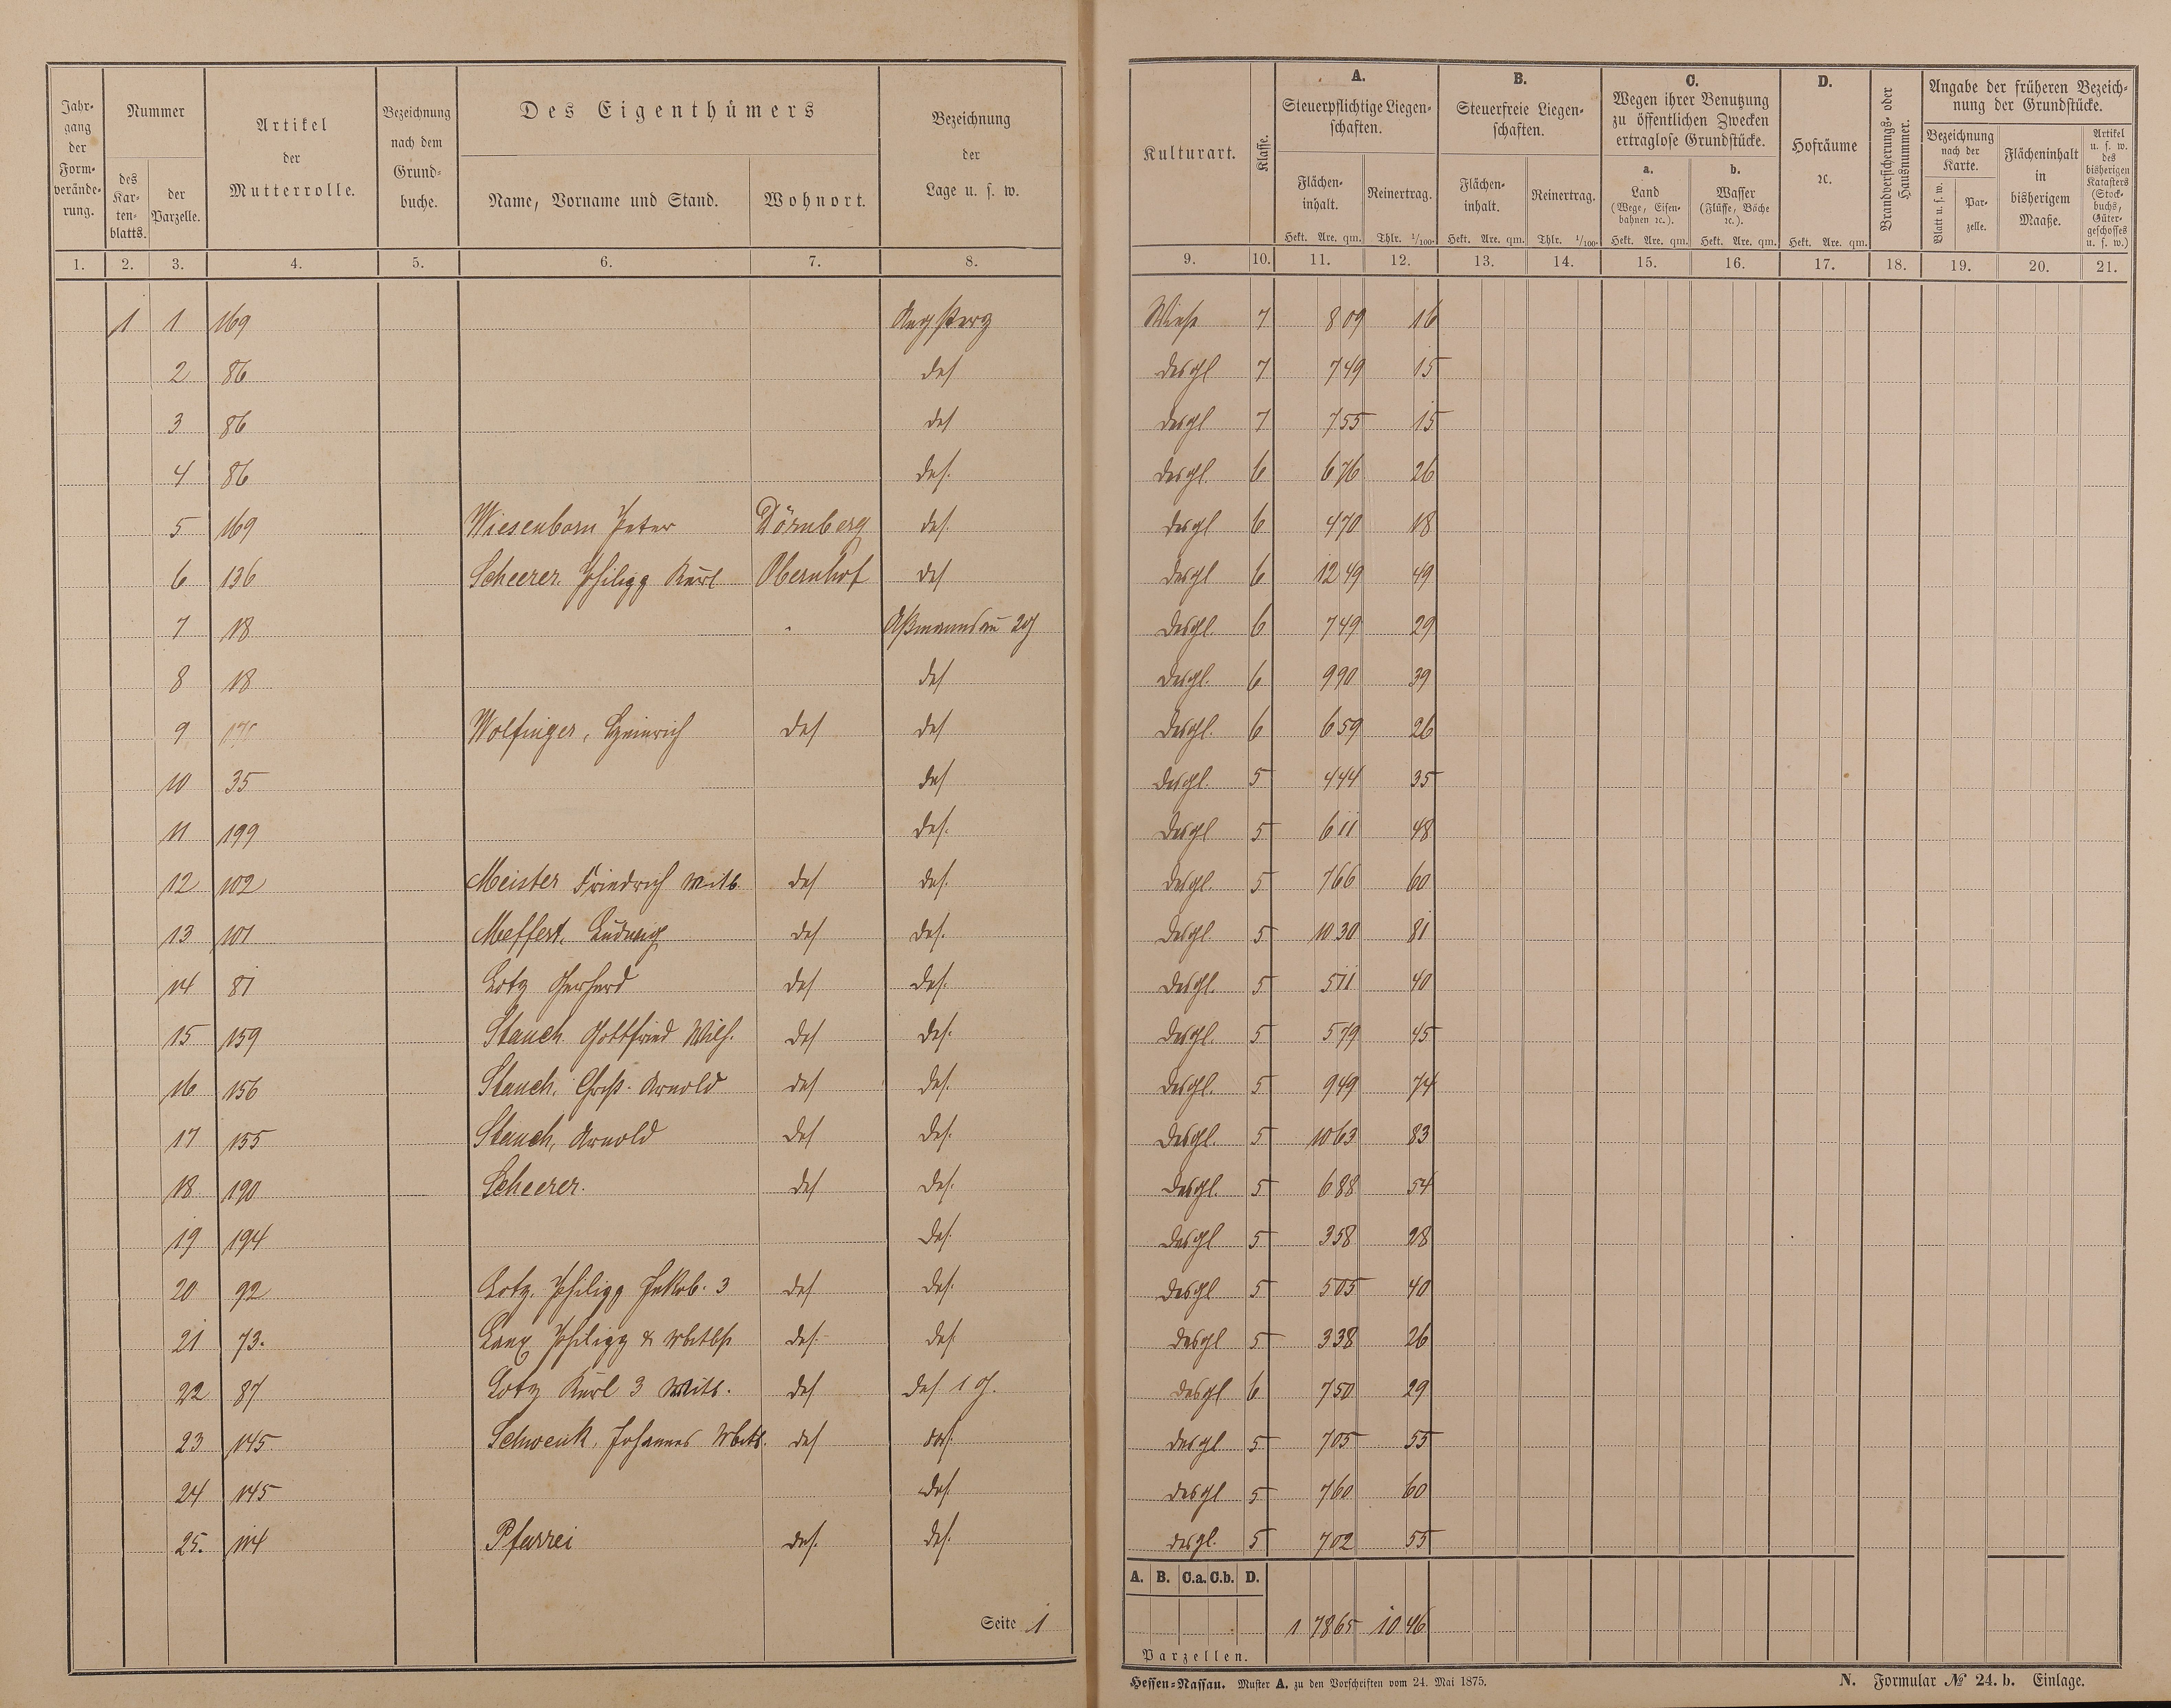 Jahrgang der Formveränderung.
Nummer
des Kartenblatts.
der Parzelle.
Artikel der Mutterrolle.
Bezeichnung nach dem Grundbuche.
Des Eigenthümers
Name, Vorname und Stand.
Wohnort.
Bezeichnung der Lage u. s. w.
Kulturart.
Klasse.
A. Steuerpflichtige Liegenschaften.
Flächeninhalt. Hekt. Are. qm.
Reinertrag. Thlr. 1/100.
B. Steuerfreie Liegenschaften.
Flächeninhalt. Hekt. Are. qm.
Reinertrag. Thlr. 1/100.
C. Wegen ihrer Benutzung zu öffentlichen Zwecken ertraglose Grundstücke.
a. Land (Wege, Eisenbahnen ꝛc.). Hekt. Are. qm.
b. Wasser (Flüsse, Bäche ꝛc.). Hekt. Are. qm.
D. Hofräume ꝛc. Hekt. Are. qm.
Brandversicherungs- oder Hausnummer.
Angabe der früheren Bezeichnung der Grundstücke.
Bezeichnung nach der Karte.
Blatt u. s. w.
Parzelle.
Flächeninhalt in bisherigem Maaße.
Artikel u. s. w. des bisherigen Katasters (Stockbuchs, Gütergeschosses u. s. w.)
1. 2. 3. 4. 5. 6. 7. 8. 9. 10. 11. 12. 13. 14. 15. 16. 17. 18. 19. 20. 21.
1 1 169 Wiese 7 8 09 16
2 86 das desgl 7 7 49 15
3 86 das desgl 7 7 55 15
4 86 das. desgl. 6 6 76 26
5 169 Wiesenborn Peter Dörnberg das. desgl 6 4 70 18
6 136 Scheerer Philipp Karl Obernhof das desgl 6 12 49 49
7 18 Aßmannsau 2g desgl. 6 7 49 29
8 18 das desgl. 6 9 90 39
9 Wolfinger, Heinrich das das desgl. 6 6 59 26
10 35 das desgl. 5 4 44 35
11 199 das. desgl 5 6 11 48
12 102 Meister Friedrich Witb das das. desgl. 5 7 66 60
13 101 Meffert, Ludwig das das. desgl. 5 10 30 81
14 81 Lotz Gerhard das das. desgl. 5 5 11 40
15 159 Stauch Gottfried Wilh. das das. desgl. 5 5 79 45
16 156 Stauch, Christ. Arnold das das. desgl. 5 9 49 74
17 155 Stauch, Arnold das das. desgl. 5 10 63 83
18 190 Scheerer. das das. desgl. 5 6 88 54
19 194 das. desgl 5 3 58 28
20 92 Lotz, Philipp Jakob. 3 das das. desgl 5 5 05 40
21 73. Philipp & das. das desgl 5 3 38 26
22 87 Lotz Karl 3 Witb. das das 1 g. desgl 6 7 50 29
23 145 Schwenk, Johannes das das. desgl 5 7 05 55
24 145 das. desgl 5 7 60 60
25. 114 Pfarrei das. das. desgl. 5 7 02 55
A. B. C.a. C.b. D.
1 78 65 10 46
Parzellen.
Seite 1
Hessen-Nassau. Muster A. zu den Vorschriften vom 24. Mai 1875.
N. Formular № 24. b. Einlage.